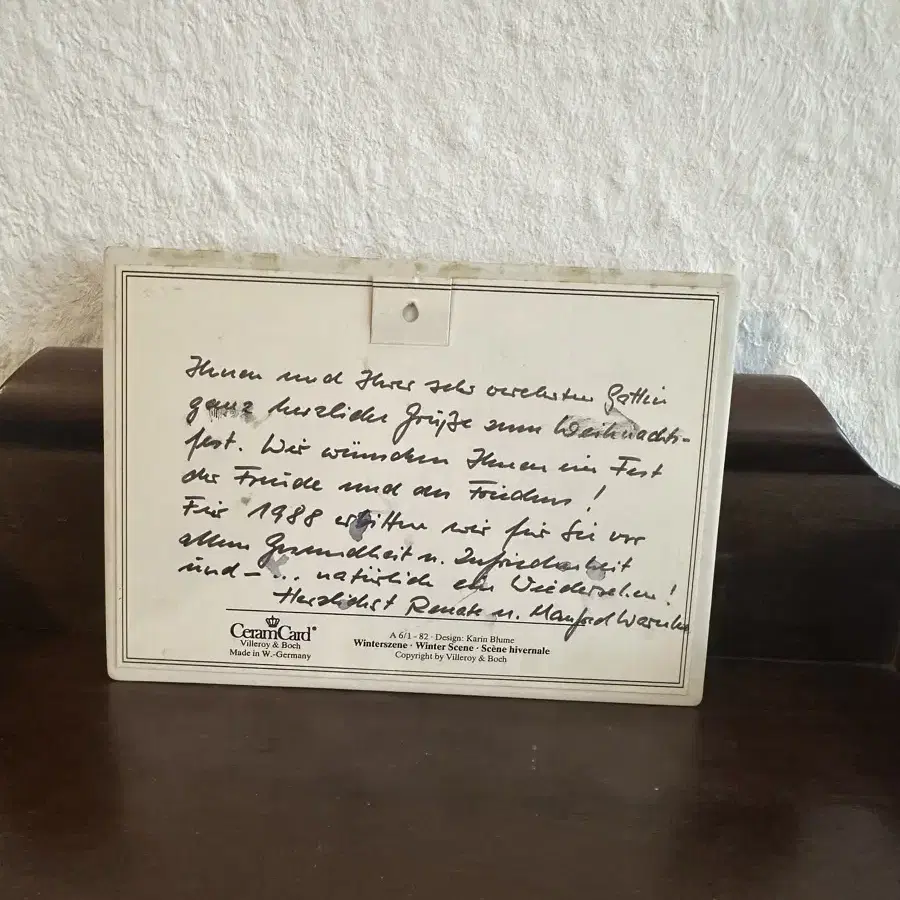 Ihnen und Ihrer sehr verehrten Gattin
ganz herzliche Grüße zum Weihnachts-
fest. Wir wünschen Ihnen ein Fest
der Freude und des Friedens!
Für 1988 erbitten wir für Sie vor
allem Gesundheit u. Zufriedenheit
und - ... natürlich ein Wiedersehen!
Herzlichst Renate u. Manfred
CeramCard®
Villeroy & Boch
Made in W.-Germany
A 6/1 - 82 · Design: Karin Blume
Winterszene · Winter Scene · Scène hivernale
Copyright by Villeroy & Boch